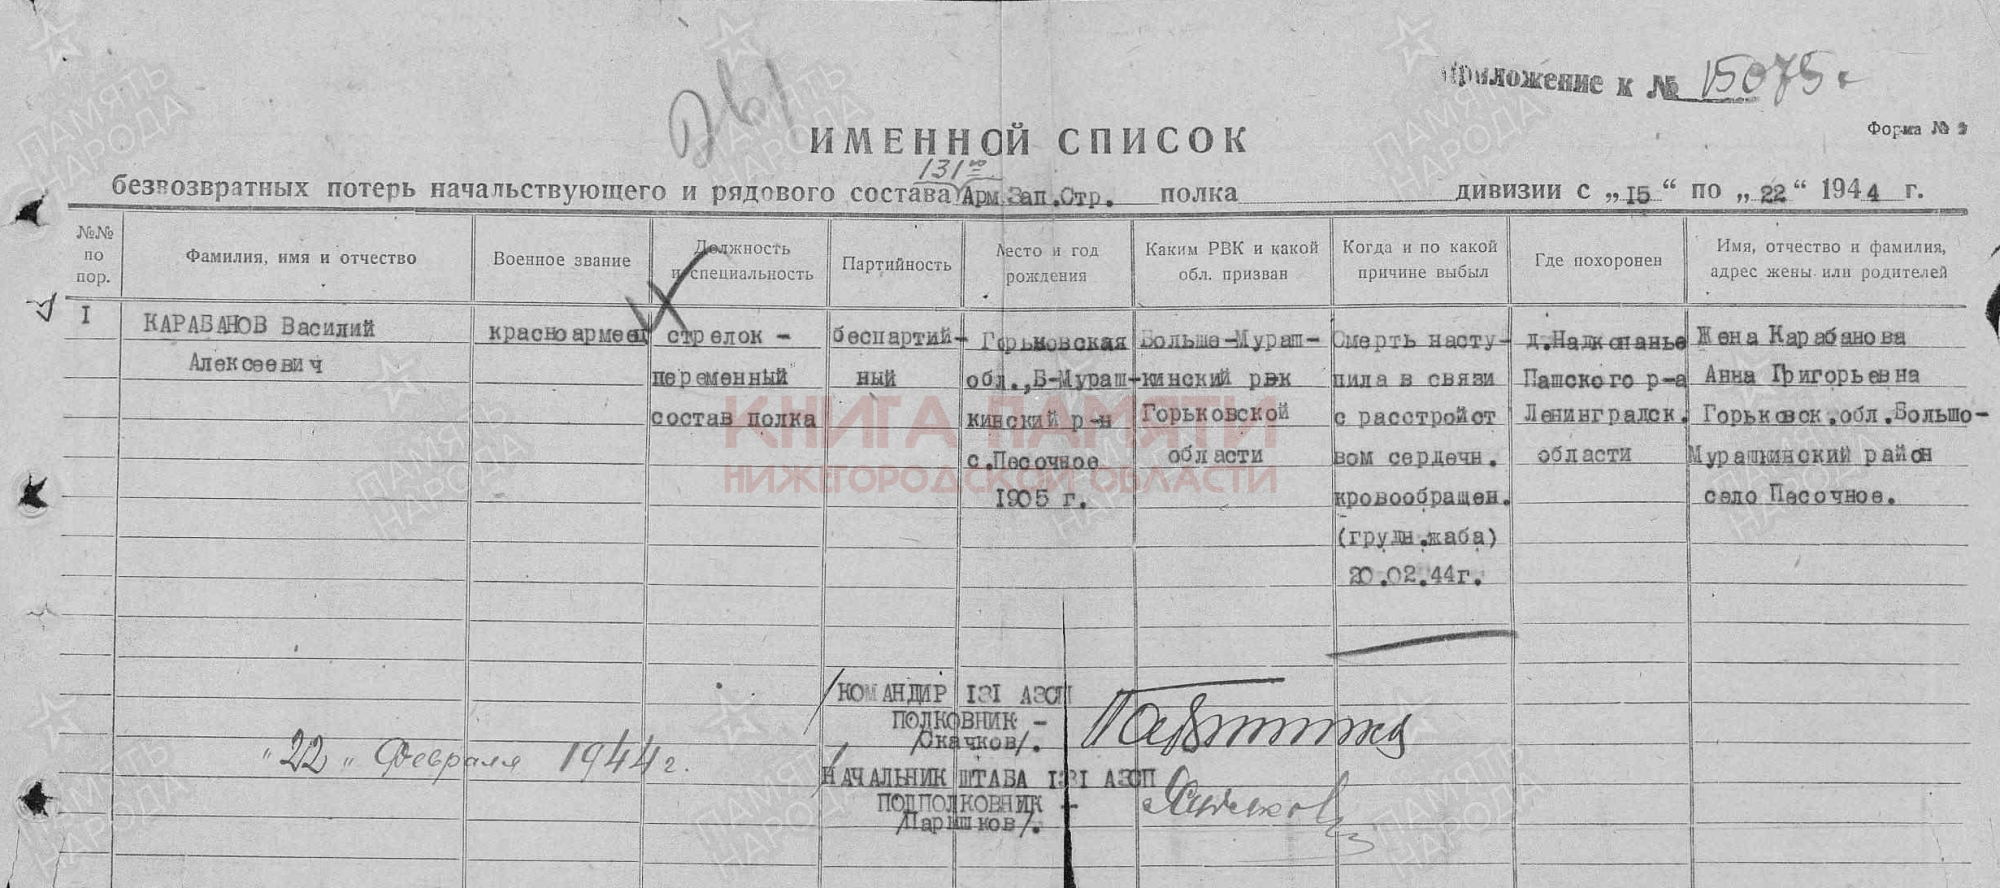 Приложение к № 15075с
ИМЕННОЙ СПИСОК
Форма № 2
131го
безвозвратных потерь начальствующего и рядового состава Арм.Зап.Стр. полка дивизии с „15“ по „22“ 1944 г.
№№ по пор.
Фамилия, имя и отчество
Военное звание
Должность и специальность
Партийность
Место и год рождения
Каким РВК и какой обл. призван
Когда и по какой причине выбыл
Где похоронен
Имя, отчество и фамилия, адрес жены или родителей
I
КАРАБАНОВ Василий
Алексеевич
красноармеец
стрелок -
переменный
состав полка
беспартий-
ный
Горьковская
обл., Б-Мураш-
кинский р-н
с.Песочное
1905 г.
Больше-Мураш-
кинский рвк
Горьковской
области
Смерть насту-
пила в связи
с расстройст
вом сердечн.
кровообращен.
(грудн.жаба)
20.02.44г.
д.Надкопанье
Пашского р-а
Ленинградск.
области
Жена Карабанова
Анна Григорьевна
Горьковск.обл.Большо-
Мурашкинский район
село Песочное.
КНИГА ПАМЯТИ
НИЖЕГОРОДСКОЙ ОБЛАСТИ
ПАМЯТЬ НАРОДА
/КОМАНДИР I3I АЗСП
ПОЛКОВНИК -
/Скачков/.
"22" февраля 1944 г.
НАЧАЛЬНИК ШТАБА I3I АЗСП
ПОДПОЛКОВНИК -
/Парышков/.